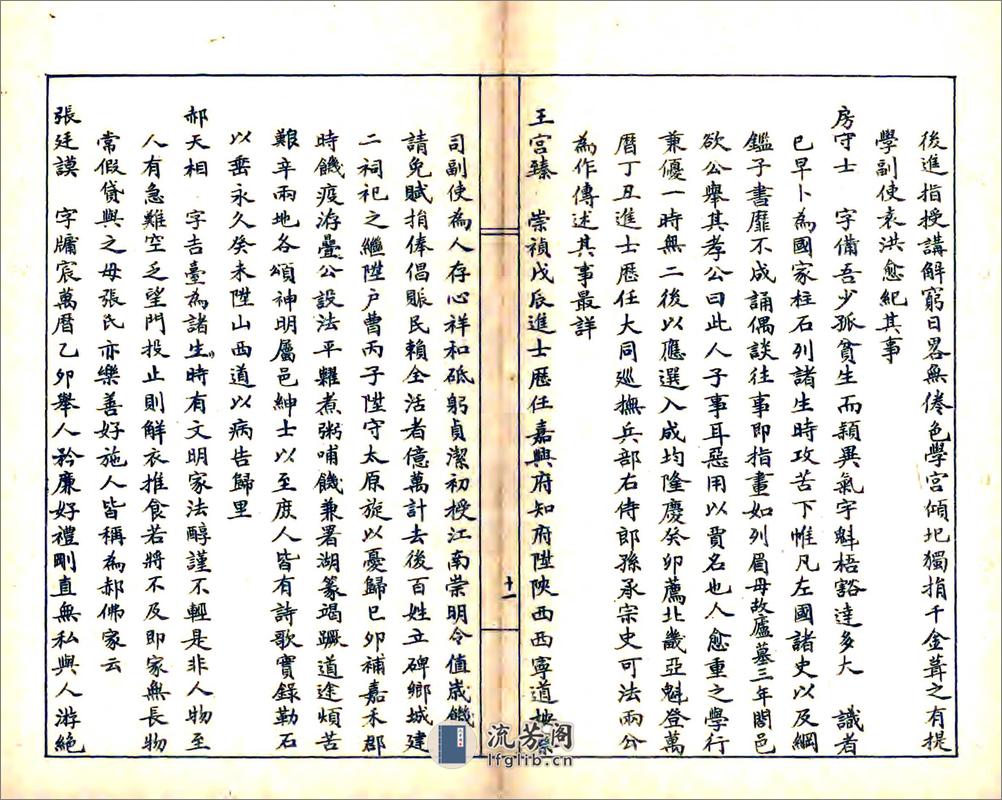 後進指授講解窮日畧無倦色學宮傾圮獨捐千金葺之有提
學副使袁洪愈紀其事
房守士　字備吾少孤貧生而穎異氣宇魁梧豁達多大　識者
已早卜為國家柱石列諸生時攻苦下帷凡左國諸史以及綱
鑑子書靡不成誦偶談往事即指畫如列眉母故廬墓三年閤邑
欲公舉其孝公曰此人子事耳惡用以賈名也人愈重之學行
兼優一時無二後以應選入成均隆慶癸卯薦北畿亞魁登萬
曆丁丑進士歷任大同廵撫兵部右侍郎孫承宗史可法兩公
為作傳述其事最詳
王宮臻　崇禎戊辰進士歷任嘉興府知府陞陝西西寧道按察
十一
司副使為人存心祥和砥躬貞潔初授江南崇明令值歲饑
請免賦捐俸倡賑民賴全活者億萬計去後百姓立碑鄉城建
二祠祀之繼陞户曹丙子陞守太原旋以憂歸已卯補嘉禾郡
時饑疫洊疊公設法平糶煮粥哺饑兼署湖篆竭蹶道途煩苦
艱辛兩地各頌神明屬邑紳士以至庶人皆有詩歌實錄勒石
以垂永久癸未陞山西道以病告歸里
郝天相　字吉臺為諸生時有文明家法醇謹不輕是非人物至
人有急難空乏望門投止則解衣推食若將不及即家無長物
常假貸與之母張氏亦樂善好施人皆稱為郝佛家云
張廷謨　字牖宸萬曆乙卯舉人矜廉好禮剛直無私與人游絕
流芳阁
lfglib.cn